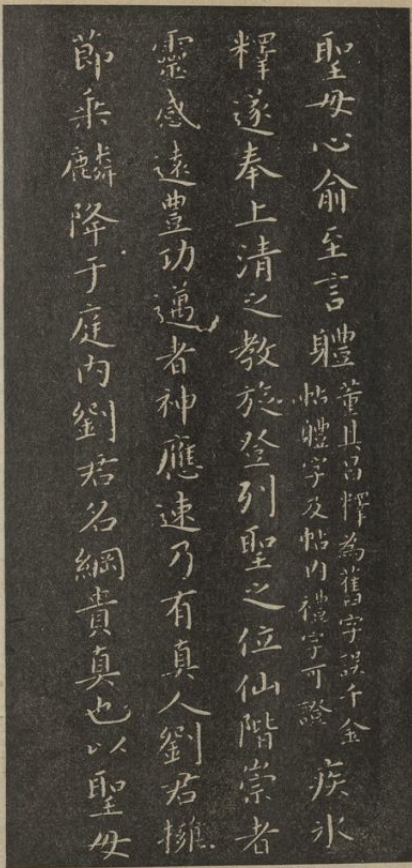 聖母心俞至言軆董其昌釋為舊字誤千金帖軆字及帖內禮字可證疾氷
釋遂奉上清之教旋登列聖之位仙階崇者
靈感遠豊功邁者神應速乃有真人劉君擁
節乘麟降于庭內劉君名綱貴真也以聖母